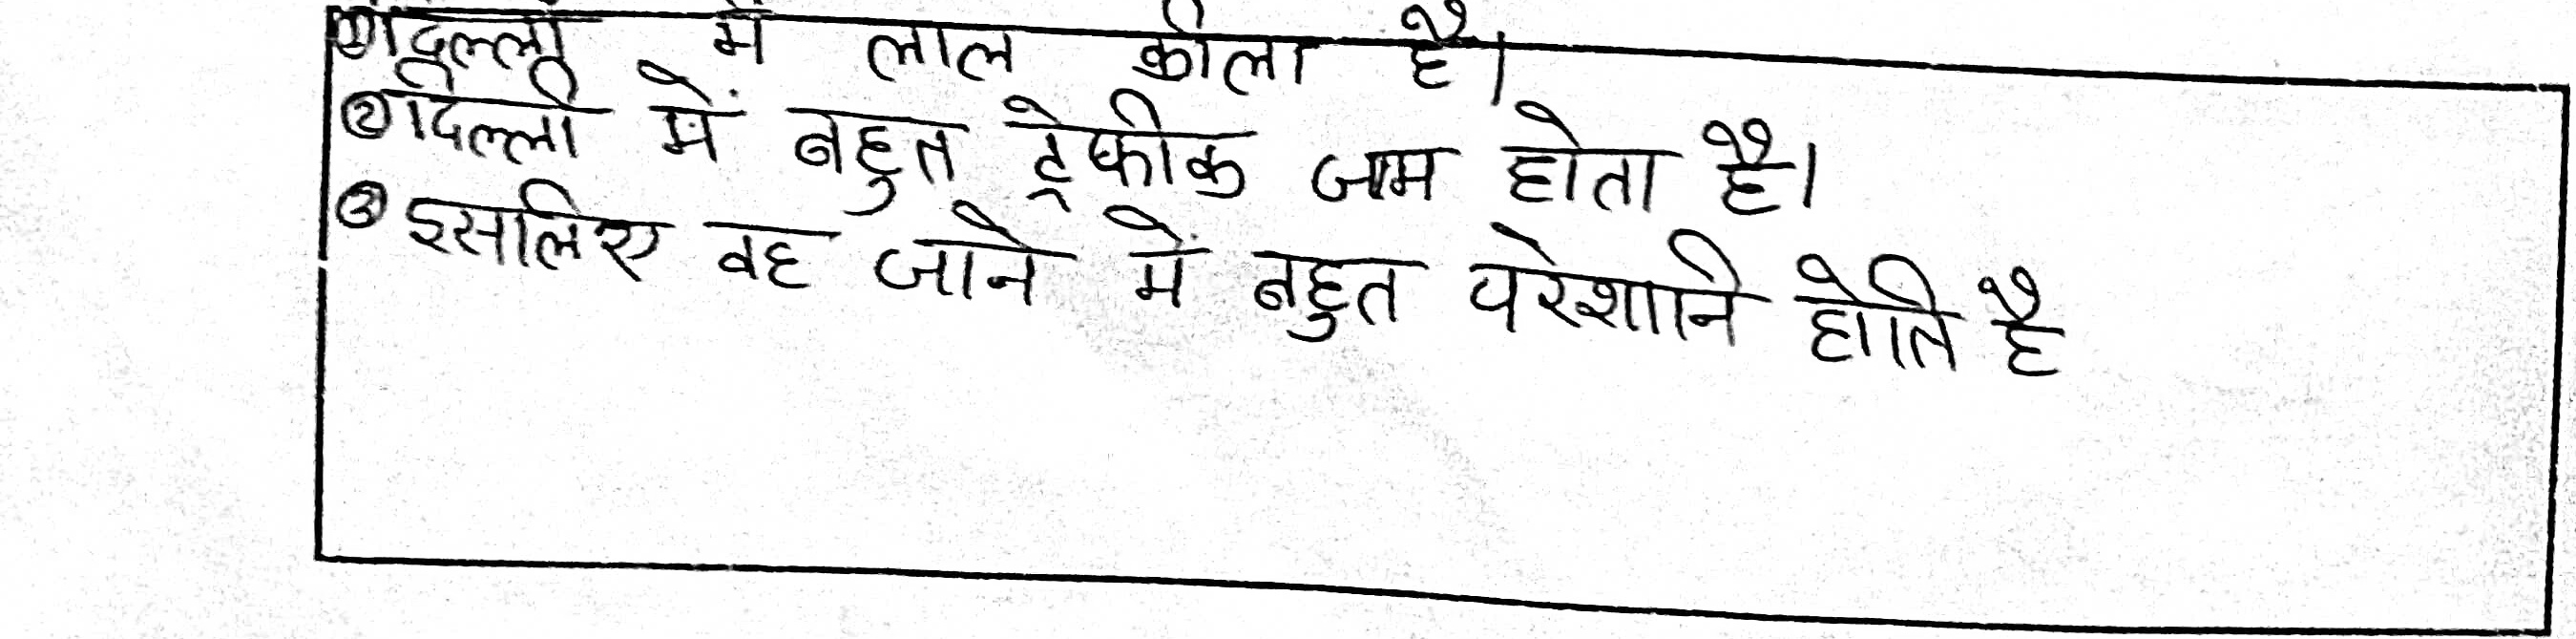 ① दिल्ली में लाल कीला है।
② दिल्ली में बहुत ट्रेफीक जाम होता है।
③ इसलिए वह जाने में बहुत परेशानि होति है